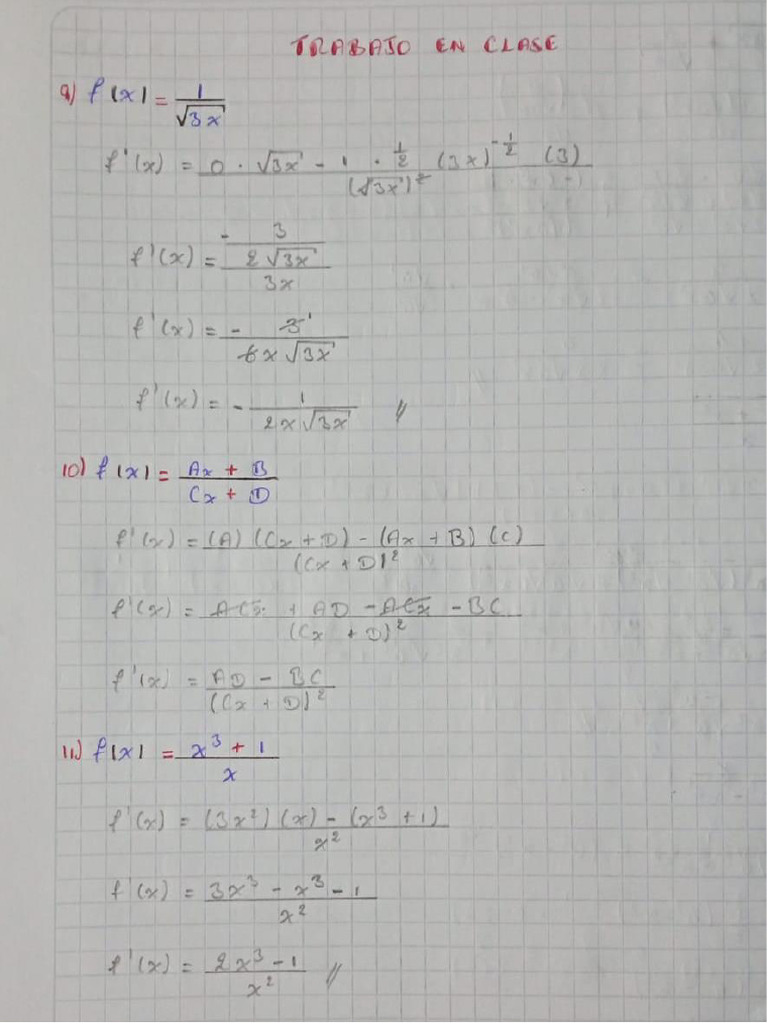 TRABAJO EN CLASE
9) f(x) = 1 / √3x
f'(x) = 0 · √3x - 1 · 1/2 (3x)^-1/2 (3) / (√3x)^2
f'(x) = - 3 / 2√3x / 3x
f'(x) = - 3 1 / 6x√3x
f'(x) = - 1 / 2x√3x //
10) f(x) = Ax + B / Cx + D
f'(x) = (A) (Cx + D) - (Ax + B) (C) / (Cx + D)^2
f'(x) = ACx + AD - ACx - BC / (Cx + D)^2
f'(x) = AD - BC / (Cx + D)^2
11) f(x) = x^3 + 1 / x
f'(x) = (3x^2) (x) - (x^3 + 1) / x^2
f'(x) = 3x^3 - x^3 - 1 / x^2
f'(x) = 2x^3 - 1 / x^2 //